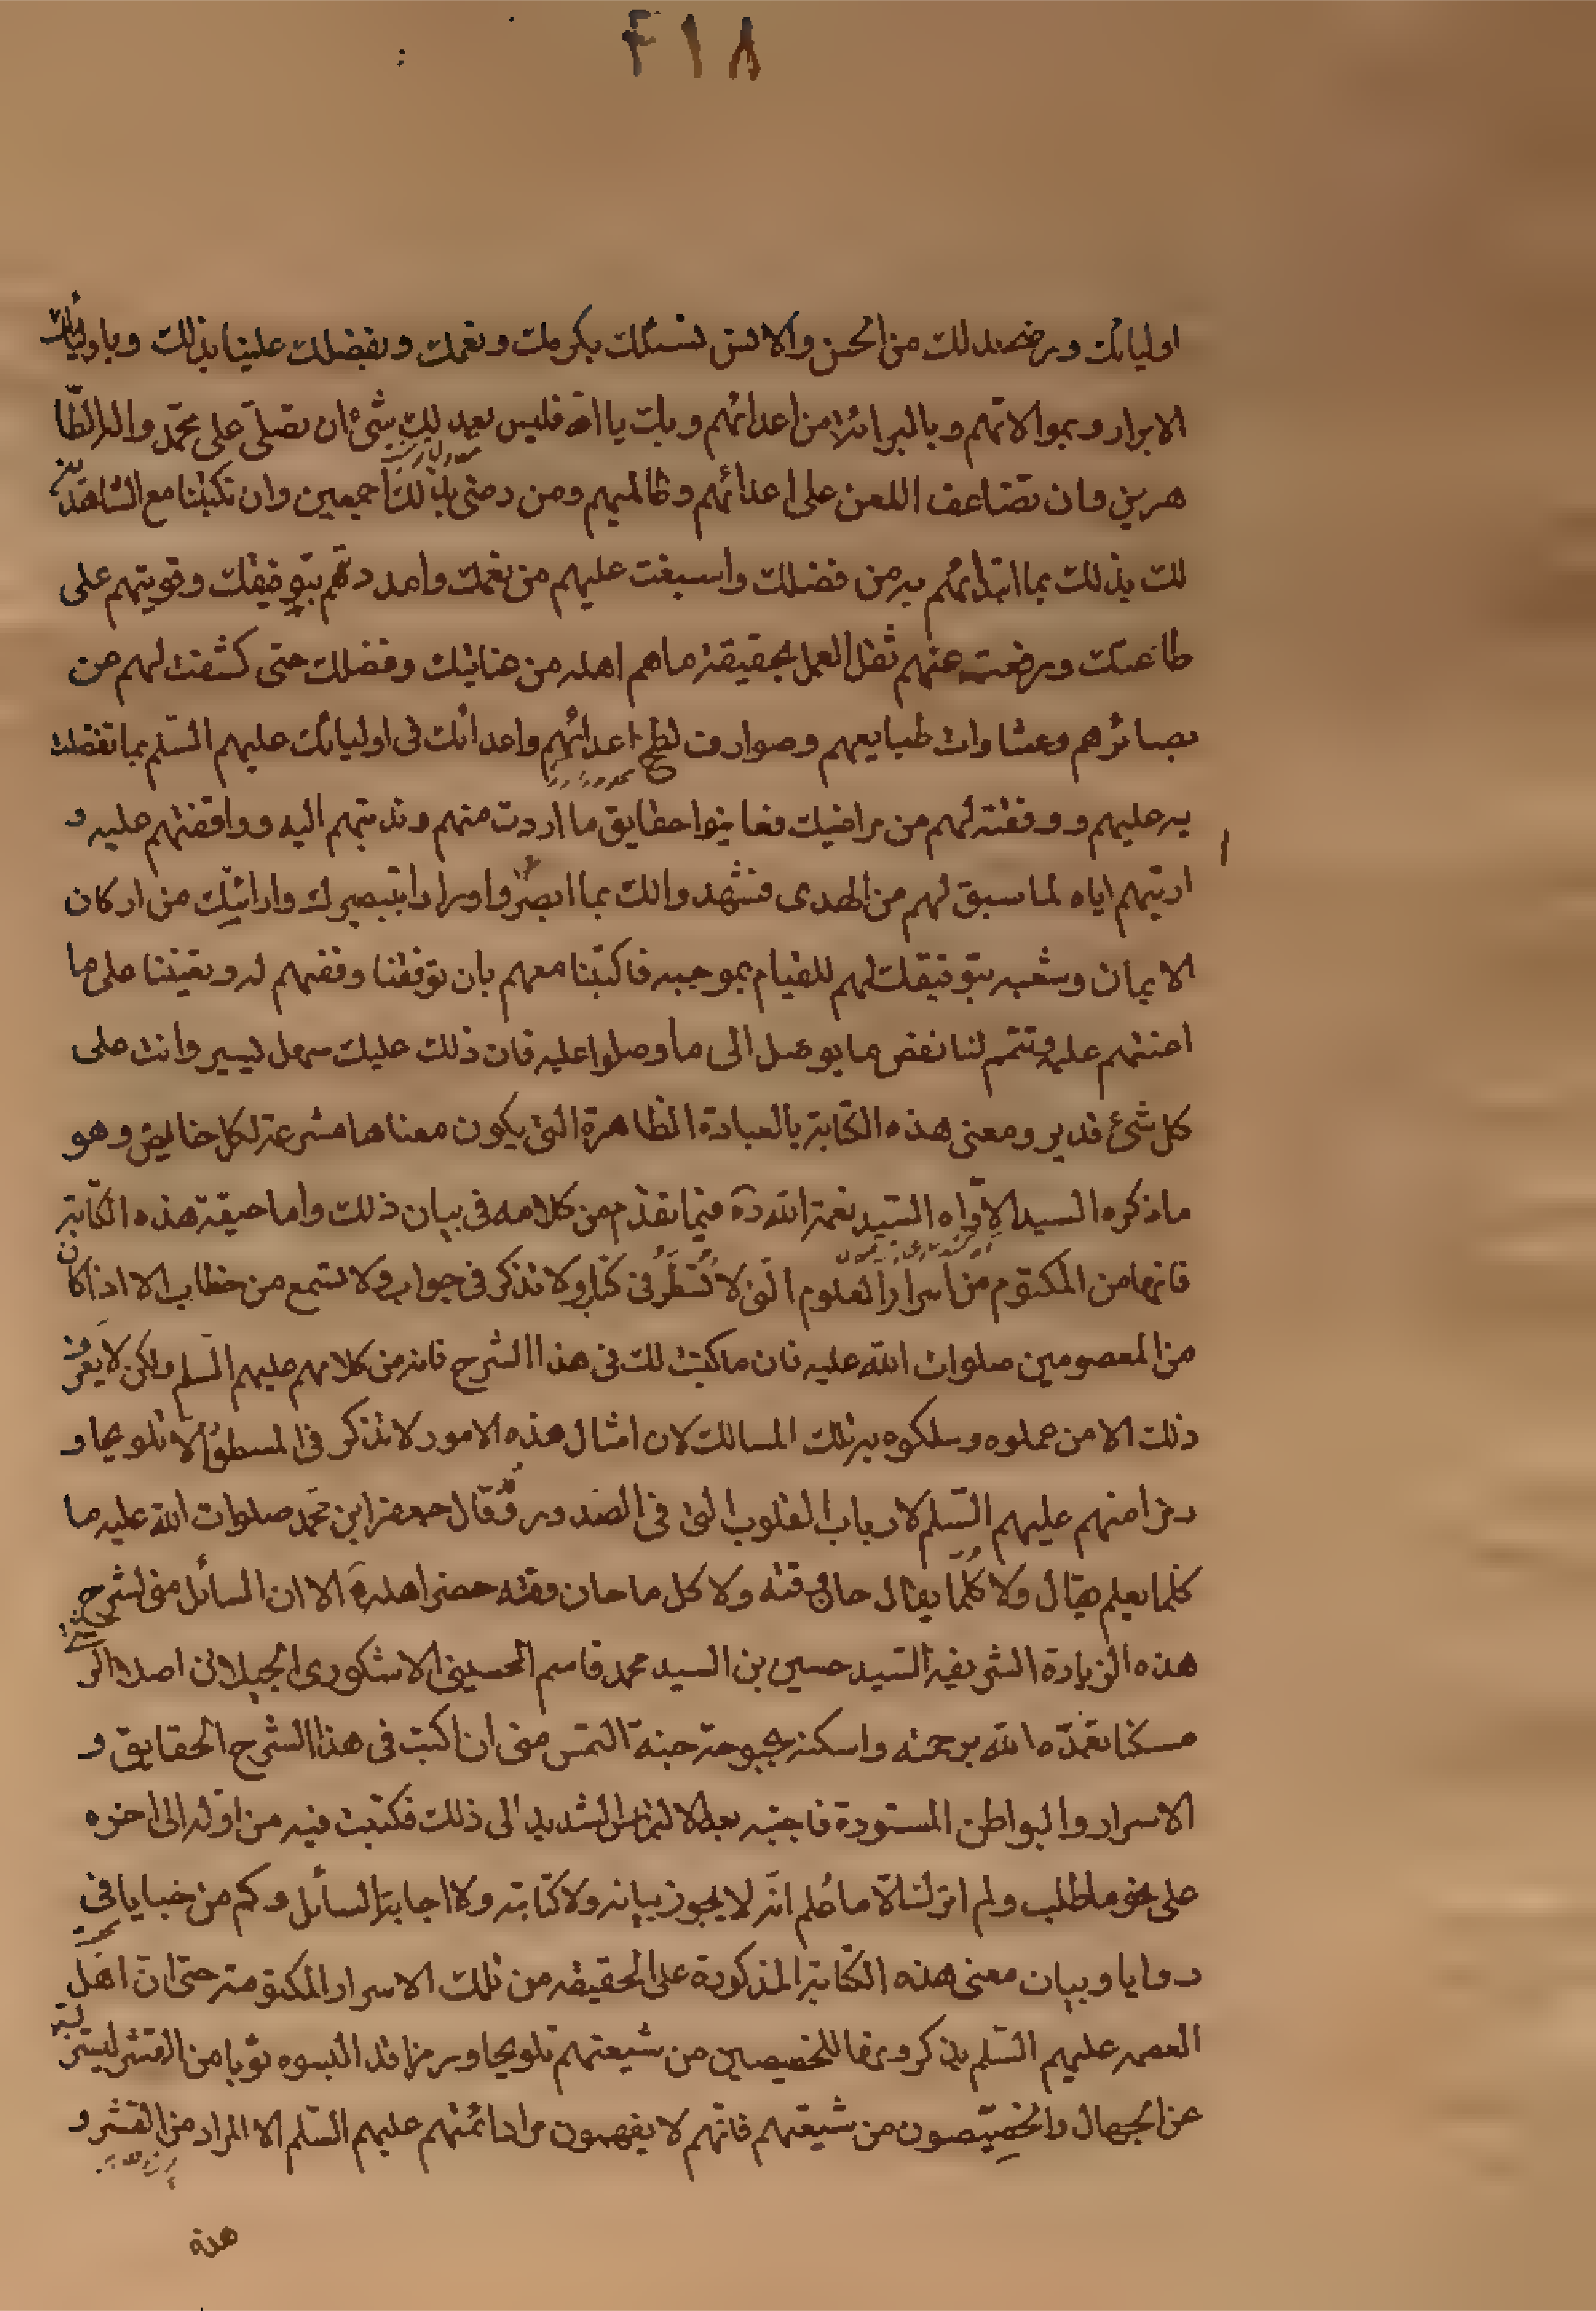 ٢١٨
اوليائك ورضه بذلك من الجن والانس نسئلك بكرمك ونعمك وبفضلك علينا بذلك وباوليائك
الابرار وبموالاتهم وبالبرائة من اعدائهم وبك يا الله فليس بعد ليك شئ ان تصلى على محمد واله الطا
هرين وان تضاعف اللعن على اعدائهم وظالميهم ومن رضى بذلك اجمعين وان تكتبنا مع الشاهدين
لك بذلك بما ابتدأتهم به من فضلك واسبغت عليهم من نعمك وامددتهم بتوفيقك وقويتهم على
طاعتك ورفعت عنهم ثقل العمل بحقيقة ما هم اهله من عنايتك وفضلك حتى كشفت لهم عن
بصائرهم وغشاوات طبايعهم وصوارف لطخ اعدائهم واعدائك فى اوليائك عليهم السلم بما تفضلت
به عليهم ووفقته لهم من مراضيك فعاينوا حقايق ما اردت منهم وندبتهم اليه وواقفتهم عليه و
اريتهم اياه لما سبق لهم من الهدى فشهدوا لك بما ابصروا ورأوا بتبصيرك وارائتك من اركان
الايمان وشعبه بتوفيقك لهم للقيام بموجبه فاكتبنا معهم بان توفقنا وفقتهم له وتعيننا على ما
اعنتهم عليه وتتمم لنا نقض ما يوصل الى ما وصلوا عليه فان ذلك عليك سهل يسير وانت على
كل شئ قدير ومعنى هذه الكتابة بالعبارة الظاهرة التى يكون معناها مشرعة لكل خايض وهو
ما ذكره السيد الاواه السيد نعمة الله ره فيما تقدم من كلامه فى بيان ذلك واما حقيقة هذه الكتابة
فانها من المكتوم من اسرار العلوم التى لا تسطر فى كتاب ولا تذكر فى جواب ولا تسمع من خطاب الا اذا كان
من المعصومين صلوات الله عليه فان ما كتبت لك فى هذا الشرح فانه من كلامهم عليهم السلم ولكن لا يعرف
ذلك الا من حملوه وسلكوه به تلك المسالك لان امثال هذه الامور لا تذكر فى المسطور الا تلويحا و
رمزا منهم عليهم السلم لارباب القلوب التى فى الصدور وقد قال جعفر ابن محمد صلوات الله عليه ما
كلما يعلم يقال ولا كلما يقال حان وقته ولا كل ما حان وقته حضر اهله الا ان السائل منى لشرح
هذه الزيارة الشريفه السيد حسين بن السيد محمد قاسم الحسينى الاشكورى الجيلانى اصلا الرشتى
مسكنا تغمده الله برحمته واسكنه بحبوحة جنته التمس منى ان اكتب فى هذا الشرح الحقايق و
الاسرار والبواطن المستورة فاجبته بعد الالتماس الشديد الى ذلك فكتبت فيه من اوله الى اخره
على نحو ما طلب ولم اترك الا ما علم انه لا يجوز بيانه ولا كتابته ولا اجابة السائل وكم من خبايا فى
روايا وبيان معنى هذه الكتابة المذكورة على الحقيقه من تلك الاسرار المكتومة حتى ان اهل
العصمه عليهم السلم يذكرونها للخصيصين من شيعتهم تلويحا ورمزا قد البسوه ثوبا من القشر ليستر
عن الجهال والخصيصون من شيعتهم فانهم لا يفهمون مراد ائمتهم عليهم السلم الا المراد من القشر و
هذه